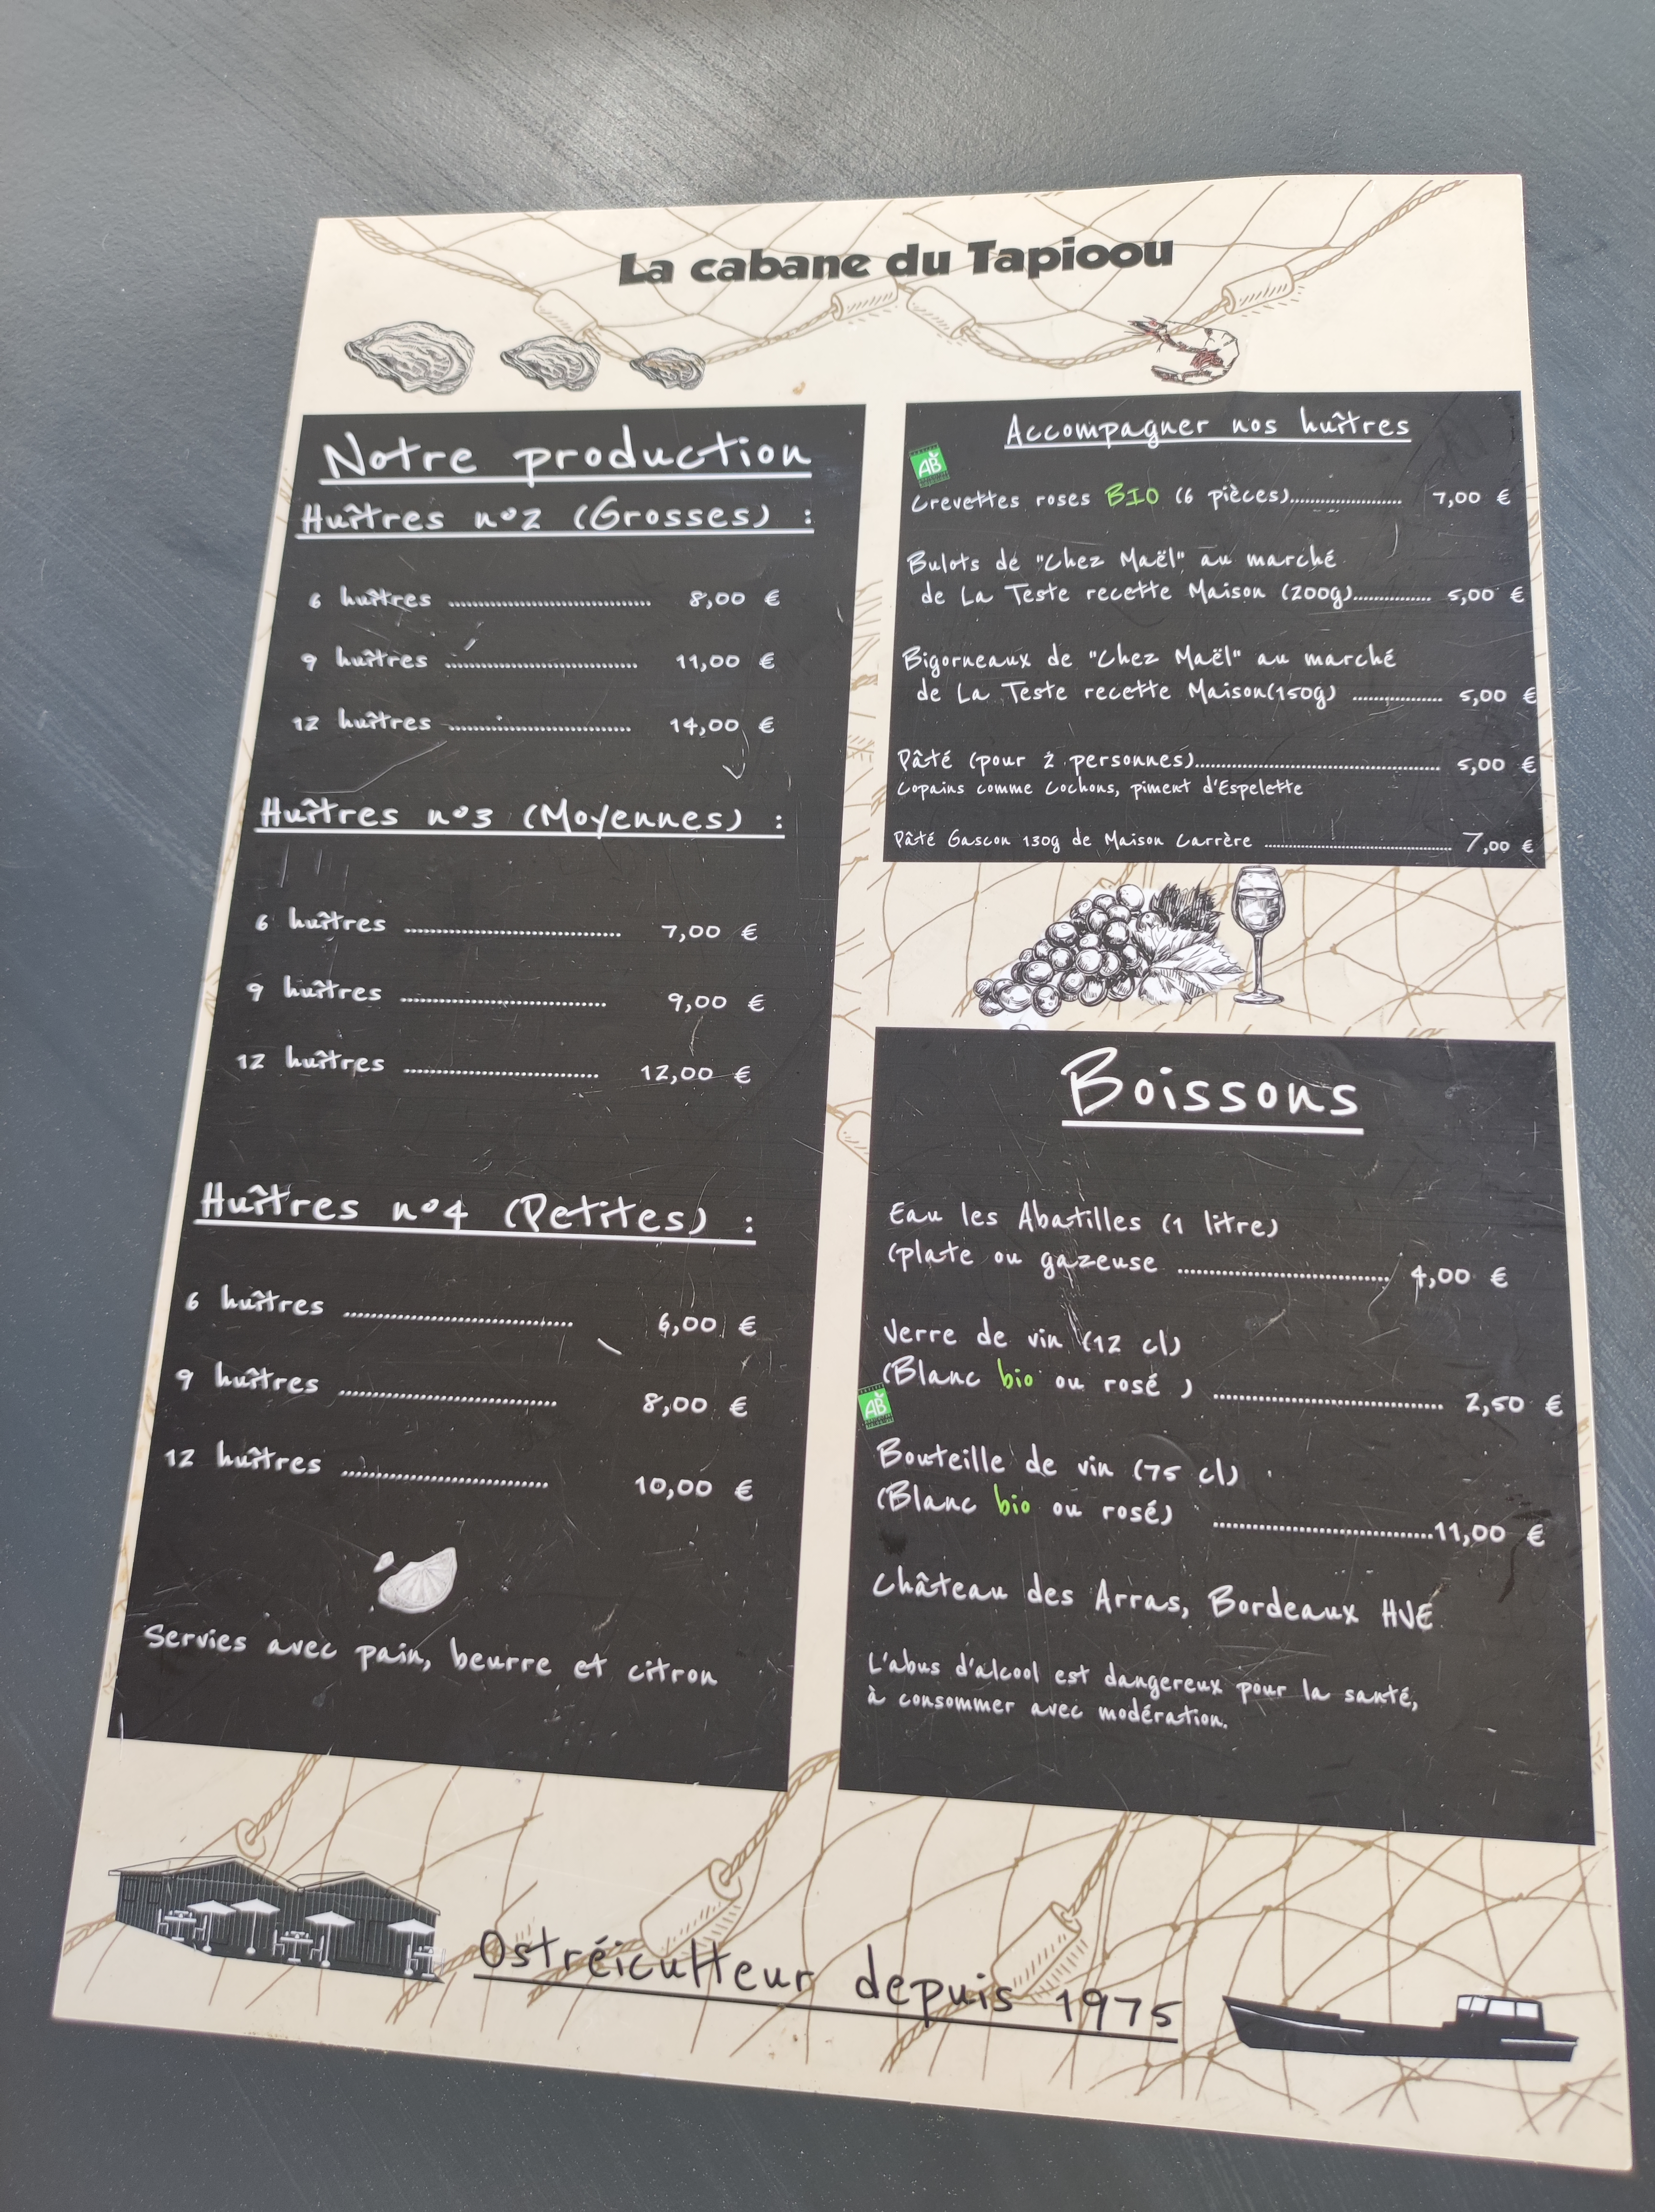 La cabane du Tapioou
Notre production
Huîtres n°2 (Grosses) :
6 huîtres .......................................... 8,00 €
9 huîtres ........................................ 11,00 €
12 huîtres ...................................... 14,00 €
Huîtres n°3 (Moyennes) :
6 huîtres .......................................... 7,00 €
9 huîtres ........................................ 9,00 €
12 huîtres ...................................... 12,00 €
Huîtres n°4 (Petites) :
6 huîtres .......................................... 6,00 €
9 huîtres ........................................ 8,00 €
12 huîtres ...................................... 10,00 €
Servies avec pain, beurre et citron
Accompagner nos huîtres
AB
Crevettes roses BIO (6 pièces)........................ 7,00 €
Bulots de "Chez Maël" au marché
de La Teste recette Maison (200g)................ 5,00 €
Bigorneaux de "Chez Maël" au marché
de La Teste recette Maison(150g) .................. 5,00 €
Pâté (pour 2 personnes)................................................... 5,00 €
Copains comme Cochons, piment d'Espelette
Pâté Gascon 130g de Maison Carrère ............................................. 7,00 €
Boissons
Eau les Abatilles (1 litre)
(plate ou gazeuse ........................................ 4,00 €
Verre de vin (12 cl)
(Blanc bio ou rosé ) ........................................... 2,50 €
AB
Bouteille de vin (75 cl)
(Blanc bio ou rosé) .........................................11,00 €
Château des Arras, Bordeaux HVE
L'abus d'alcool est dangereux pour la santé,
à consommer avec modération.
Ostréiculteur depuis 1975